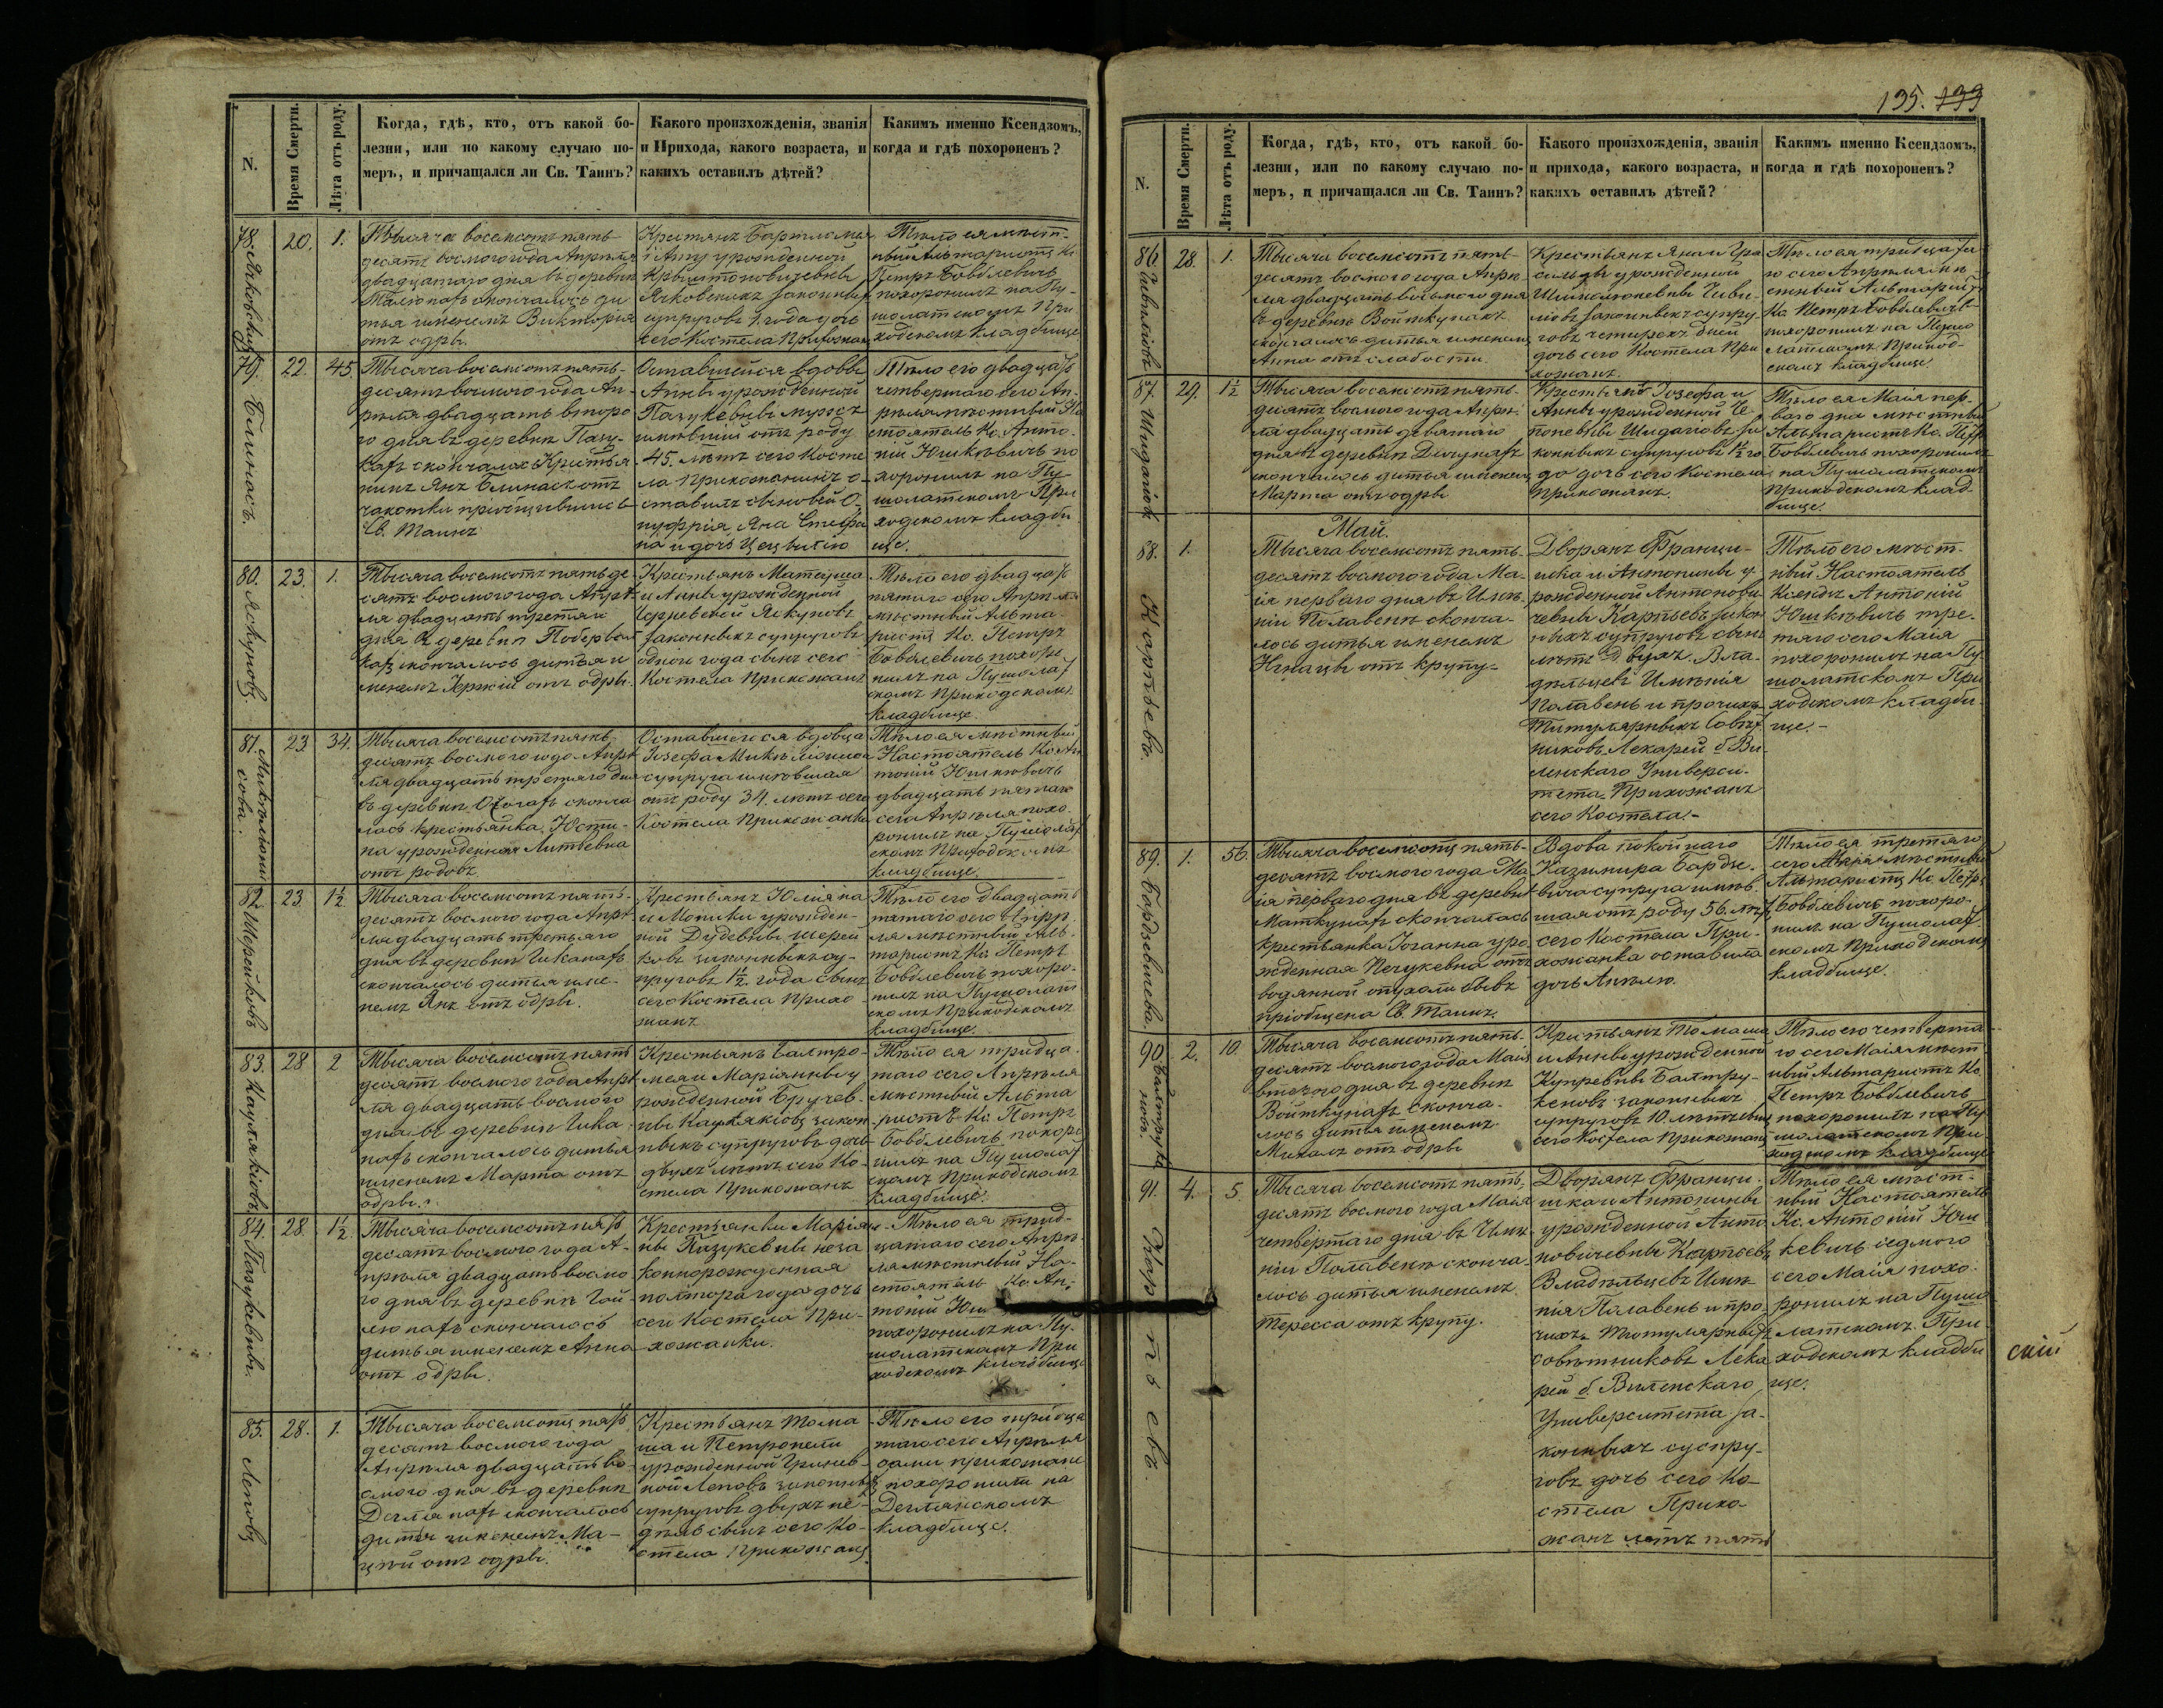 N.
Время Смерти.
Лѣта отъ роду.
Когда, гдѣ, кто, отъ какой бо-
лезни, или по какому случаю по-
меръ, и причащался ли Св. Таинъ?
Какого произхожденія, званія
и Прихода, какого возраста, и
какихъ оставилъ дѣтей?
Какимъ именно Ксендзомъ,
когда и гдѣ похороненъ?
78.
20.
1.
Тысяча восемсотъ пять-
десятъ восмого года Апрѣля
двадцатаго дня въ деревни
скончалось ди-
тья именемъ Викторія
отъ одры.
Крестянъ Бартломея
и Анны урожденной
законныхъ
супруговъ 1. года дочь
сего Костела Прихожанъ
Тѣло ея мѣст-
ный Альтаристъ Кс.
Петръ Бовблевичъ
похоронилъ на Пу-
шолатскомъ При-
ходскомъ кладбище
79. Блинасъ.
22.
45.
Тысяча восемсотъ пять-
десятъ восмого года Ап-
рѣля двадцать второ
го дня въ деревни Пазу-
кахъ скончался Крестья
нинъ Янъ Блинасъ отъ
чахотки пріобщившись
Св. Таинъ
Оставшейся вдовы
Анны урожденной
Пазукевны мужъ
имѣвшій отъ роду
45. лѣтъ сего Косте
ла прихожанинъ о-
ставилъ сыновей О-
нуфрія, Яна Стефа
на и дочь Цецылію
Тѣло его двадцать
четвертаго сего Ап-
рѣля мѣстный На
стоятель Кс. Анто-
ній Юшкѣвичъ по
хоронилъ на Пу
шолатскомъ При
ходскомъ кладби
ще.
80. Яскуновъ.
23.
1.
Тысяча восемсотъ пятьде-
сятъ восмого года Апрѣ-
ля двадцать третяго
дня в деревни
скончалось дитья и
менемъ Юржій отъ одры.
Крестьянъ Матеуша
и Анны урожденной
Яскуновъ
законныхъ супруговъ
одного года сынъ сего
Костела Прихожанъ
Тѣло его двадцать
пятаго сего Апрѣля
мѣстный Альта-
ристъ Кс. Петръ
Бовблевичъ похоро
нилъ на Пушолат
скомъ приходскомъ
кладбище.
81.
23
34.
Тысяча восемсотъ пять-
десятъ восмого года Апрѣ
ля двадцать третяго дня
въ деревни сконча
лась крестьянка Юсти-
на урожденная Литвевна
отъ родовъ.
Оставшегося вдовца
Іозефа
супруга имѣвшая
отъ роду 34. лѣтъ сего
Костела Прихожанка
Тѣло ея мѣстный
Настоятель Кс. Ан
тоній Юшкѣвичъ
двадцать пятаго
сего Апрѣля похо-
ронилъ на Пушолат
скомъ Приходскомъ
кладбище.
82. Шерейковъ
23
1½
Тысяча восемсотъ пять-
десятъ восмого года Апрѣ-
ля двадцать третьяго
дня въ деревни Чиканахъ
скончалось дитья име-
немъ Янъ отъ одры.
Крестьянъ Юліяна
и Моники урожден-
ной Дудевны Шерей
ковъ законныхъ су-
пруговъ 1½ года сынъ
сего Костела Прихо-
жанъ
Тѣло его двадцать
пятаго сего Апрѣ-
ля мѣстный Аль-
таристъ Кс. Петръ
Бовблевичъ похоро-
нилъ на Пушолат
скомъ Приходскомъ
кладбище.
83. Кауляковъ
28
2
Тысяча восемсотъ пять
десятъ восмого года Апрѣ
ля двадцать восмого
дня въ деревни Чика-
нахъ скончалось дитья
именемъ Марта отъ
одры.
Крестьянъ Балтро-
мея и Маріанны у
рожденной Бручев-
ны закон
ныхъ супруговъ дочь
двухъ лѣтъ сего Ко-
стела Прихожанъ
Тѣло ея тридца-
таго сего Апрѣля
мѣстный Альта
ристъ Кс. Петръ
Бовблевичъ похоро
нилъ на Пушолат
скомъ Приходскомъ
кладбище.
84. Пазукевны.
28.
1½
Тысяча восемсотъ пять
десятъ восмого года А-
прѣля двадцать восмо
го дня въ деревни
скончалось
дитья именемъ Анна
отъ одры.
Крестьянки Маріян-
ны Пазукевны неза
коннорожденная
полтора года дочь
сего Костела При-
хожанки.
Тѣло ея трид-
цатаго сего Апрѣ-
ля мѣстный На-
стоятель Кс. Ан-
тоній
похоронилъ на Пу-
шолатскомъ При
ходскомъ кладбище
85. Леповъ
28.
1.
Тысяча восемсотъ пять
десятъ восмого года
Апрѣля двадцать во-
смого дня въ деревни
скончалось
дитья именемъ Ма-
цѣй отъ одры.
Крестьянъ Тома
ша и Петронели
урожденной Гринев-
ной Леповъ законныхъ
супруговъ двухъ не-
дѣль сынъ сего Ко-
стела Прихожанъ
Тѣло его тридца
таго сего Апрѣля
сами прихожане
похоронили на
кладбище.
135. 133
N.
Время Смерти.
Лѣта отъ роду.
Когда, гдѣ, кто, отъ какой бо-
лезни, или по какому случаю по-
меръ, и причащался ли Св. Таинъ?
Какого произхожденія, званія
и прихода, какого возраста, и
какихъ оставилъ дѣтей?
Какимъ именно Ксендзомъ,
когда и гдѣ похороненъ?
86.
28.
1.
Тысяча восемсотъ пять-
десятъ восмого года Апрѣ-
ля двадцать восьмого дня
въ деревни Войткунахъ
скончалось дитья именемъ
Анна отъ слабости.
Крестьянъ Яна и
урожденной
законныхъ супру-
говъ четырехъ дней
дочь сего Костела При
хожанъ.
Тѣло ея тридцата
го сего Апрѣля мѣ
стный Альтаристъ
Кс. Петръ Бовблевичъ
похоронилъ на Пушо
латскомъ Приход-
скомъ кладбище.
87.
29.
1½
Тысяча восемсотъ пять-
десятъ восмого года Апрѣ-
ля двадцать девятаго
дня въ деревни
скончалось дитья именемъ
Марта отъ одры
Крестьянъ Іозефа и
Анны урожденной Че-
поневны за
конныхъ супруговъ 1½ го
да дочь сего Костела
прихожанъ.
Тѣло ея Маія пер-
ваго дня мѣстный
Альтаристъ Кс. Петръ
Бовблевичъ похоронилъ
на Пушолатскомъ
Приходскомъ клад-
бище.
Май.
88. Картьевъ.
1.
Тысяча восемсотъ пять-
десятъ восмого года Ма-
ія первого дня въ Имѣ-
ніи Полавенѣ сконча-
лось дитья именемъ
Игнацы отъ крупу-
Дворянъ Франци-
шка и Антонины у-
рожденной Антонови
чевны Картьевъ закон
ныхъ супруговъ сынъ
лѣтъ двухъ. Вла-
дѣльцевъ Имѣнія
Полавень и прочихъ
Титулярныхъ Совѣт
никовъ Лекарей б. Ви-
ленскаго Универси-
тета. Прихожанъ
сего Костела.-
Тѣло его мѣст-
ный Настоятель
Ксендзъ Антоній
Юшкѣвичъ тре-
тяго сего Маія
похоронилъ на Пу
шолатскомъ При
ходскомъ кладби
ще.-
89.
1.
56.
Тысяча восемсотъ пять-
десятъ восмого года Ма
ія первого дня въ деревни
Маткунахъ скончалась
крестьянка Іоганна уро
жденная отъ
водянной опухоли бывъ
пріобщена Св. Таинъ.
Вдова покойнаго
Казимира
супруга имѣв-
шая отъ роду 56. лѣтъ
сего Костела При-
хожанка оставила
дочь Анѣлю.
Тѣло ея третяго
сего Маія мѣстный
Альтаристъ Кс. Петръ
Бовблевичъ похоро-
нилъ на Пушолат
скомъ Приходскомъ
кладбище.
90.
2.
10.
Тысяча восемсотъ пять-
десятъ восмого года Маія
второго дня въ деревни
Войткунахъ сконча-
лось дитья именемъ
Михалъ отъ одры
Крестьянъ Томаша
и Анны урожденной
Купревны Балтру-
кеновъ законныхъ
супруговъ 10. лѣтъ сынъ
сего Костела прихожанъ
Тѣло его четверта
го сего Маія мѣст
ный Альтаристъ Кс.
Петръ Бовблевичъ
похоронилъ на Пу
шолатскомъ При
ходскомъ кладбище
91. Картьевъ.
4.
5.
Тысяча восемсотъ пять-
десятъ восмого года Маія
четвертаго дня въ Имѣ
ніи Полавенѣ сконча
лось дитья именемъ
Тересса отъ крупу.
Дворянъ Франци-
шка и Антонины
урожденной Анто
новичевны Картьевъ
Владѣльцевъ Имѣ
нія Полавень и про-
чихъ Титулярныхъ
Совѣтниковъ Лека
рей б. Виленскаго
Университета за-
конныхъ супру-
говъ дочь сего Ко-
стела Прихо-
жанъ лѣтъ пять
Тѣло ея мѣст-
ный Настоятель
Кс. Антоній Юш
кевичъ седмого
сего Маія похо-
ронилъ на Пушо
латскомъ При
ходскомъ кладби
ще.
скій